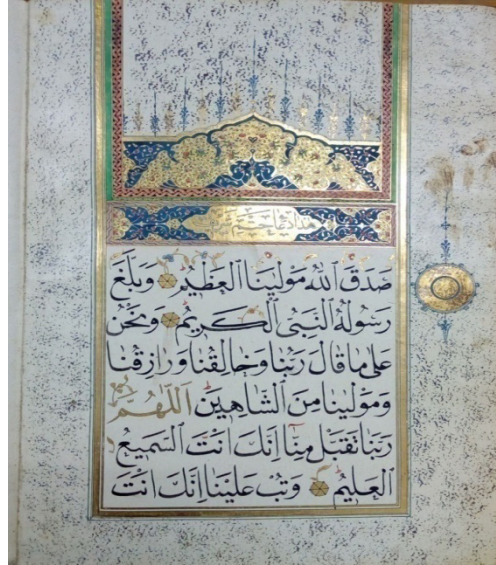 هذا دعا ختم شريف
صَدَقَ اللّٰهُ مَوْلٰينَا الْعَظِيمُ وَبَلَّغَ
رَسُولُهُ النَّبِىُّ الْكَرِيمُ وَنَحْنُ
عَلٰى مَا قَالَ رَبُّنَا وَخَالِقُنَا وَرَازِقُنَا
وَمَوْلٰينَا مِنَ الشَّاهِدِينَ اَللّٰهُمَّ
رَبَّنَا تَقَبَّلْ مِنَّا اِنَّكَ اَنْتَ السَّمِيعُ
الْعَلِيمُ وَتُبْ عَلَيْنَا اِنَّكَ اَنْتَ